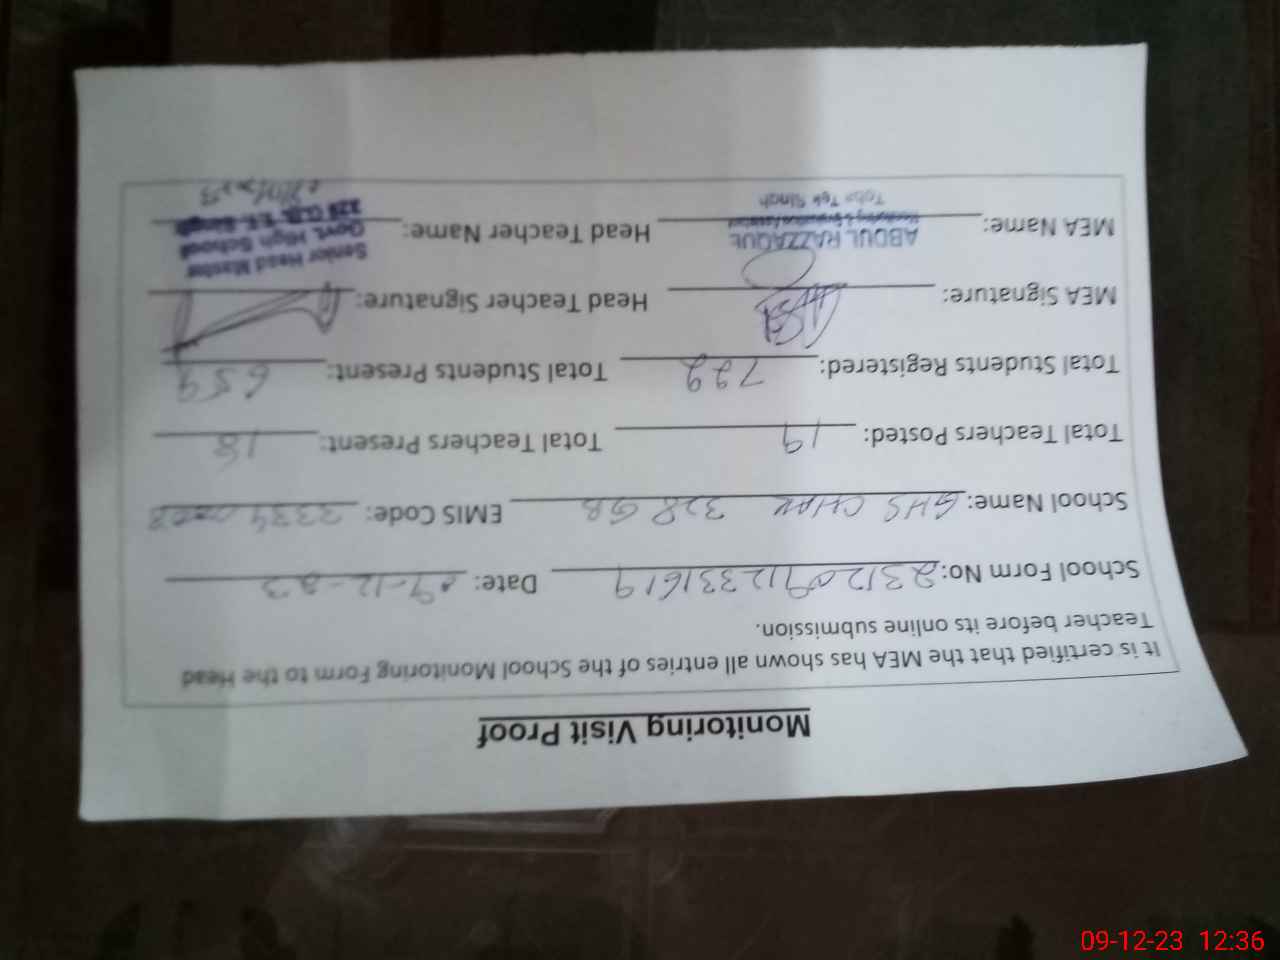 Monitoring Visit Proof
It is certified that the MEA has shown all entries of the School Monitoring Form to the Head
Teacher before its online submission.
School Form No: 2312091123316 19 Date: 09-12-23
School Name: GHS CHAK 328 GB EMIS Code:
Total Teachers Posted: 19 Total Teachers Present: 18
Total Students Registered: 722 Total Students Present: 659
MEA Signature: Head Teacher Signature:
MEA Name: ABDUL RAZZAQUE Head Teacher Name: Senior Head Master
Monitoring & Evaluation Assistant Govt. High School
Toba Tek Singh T.T. Singh
09-12-23 12:36